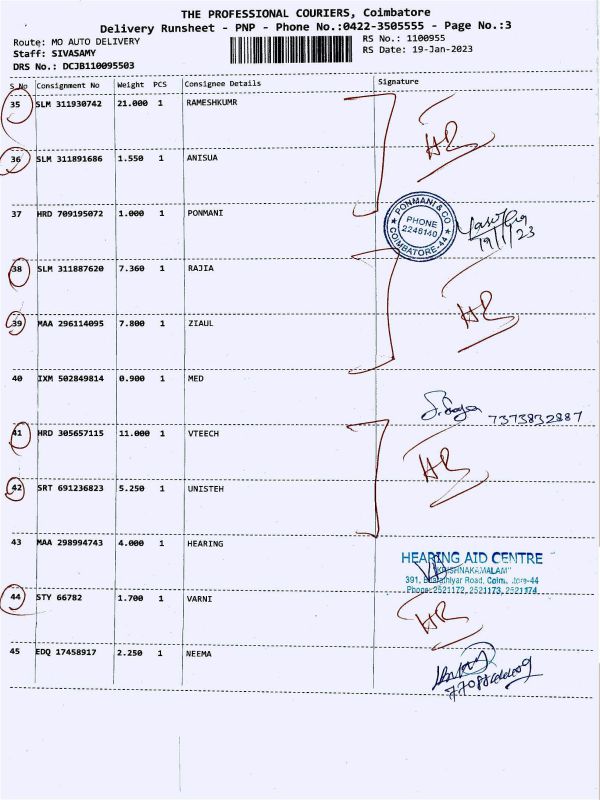 THE PROFESSIONAL COURIERS, Coimbatore
Delivery Runsheet - PNP - Phone No.:0422-3505555 - Page No.:3
Route: MO AUTO DELIVERY RS No.: 1100955
Staff: SIVASAMY RS Date: 19-Jan-2023
DRS No.: DCJB110095503
S.No Consignment No Weight PCS Consignee Details Signature
35 SLM 311930742 21.000 1 RAMESHKUMR
HR
36 SLM 311891686 1.550 1 ANISUA
37 HRD 709195072 1.000 1 PONMANI
PONMANI & CO
PHONE
2246140
COIMBATORE-44
19/1/23
38 SLM 311887620 7.360 1 RAJIA
HR
39 MAA 296114095 7.800 1 ZIAUL
40 IXM 502849814 0.900 1 MED
7373832887
41 HRD 305657115 11.000 1 VTEECH
HR
42 SRT 691236823 5.250 1 UNISTEH
43 MAA 298994743 4.000 1 HEARING
HEARING AID CENTRE
"KRISHNAKAMALAM"
391, Bharathiyar Road, Coimbatore-44
Phone: 2521172, 2521173, 2521174
44 STY 66782 1.700 1 VARNI
HR
45 EDQ 17458917 2.250 1 NEEMA